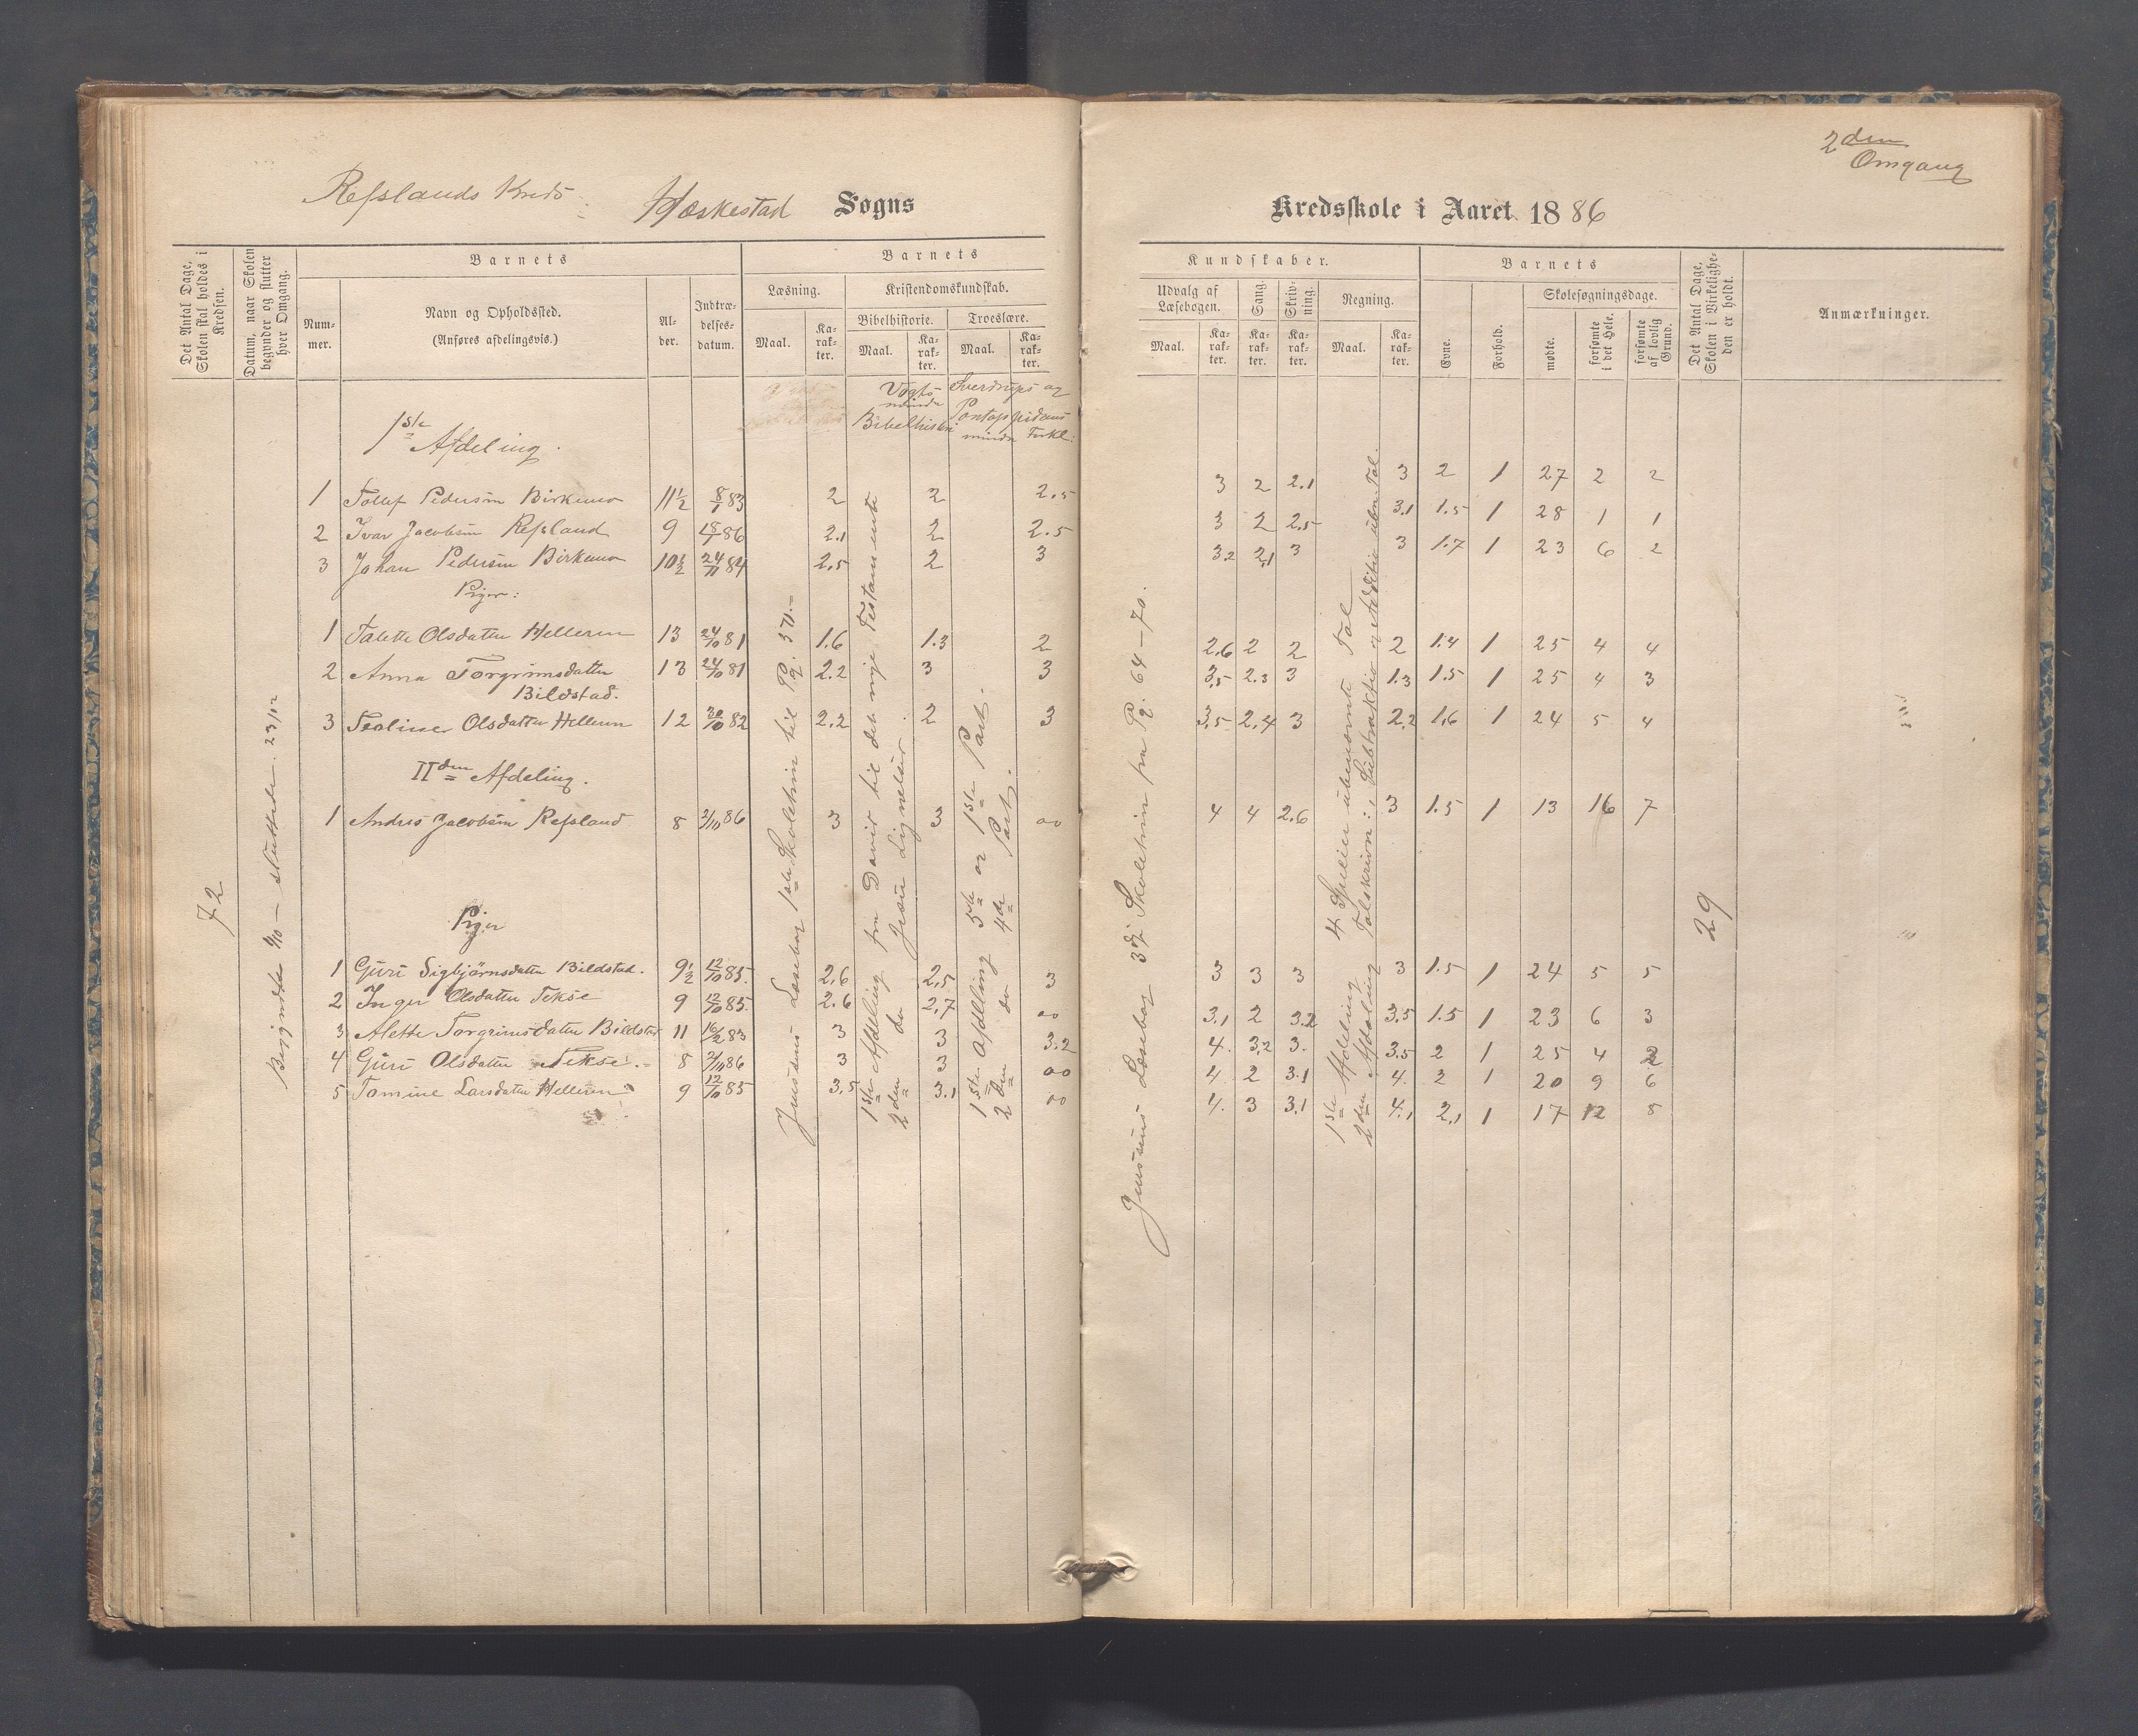 2den
Omgang
Refslands Kreds. Heskestad Sogns
Kredsskole i Aaret 1886
Det Antal Dage, Skolen skal holdes i Kredsen.
Datum, naar Skolen begynder og slutter hver Omgang.
Barnets
Nummer.
Navn og Opholdssted.
(Anføres afdelingsvis.)
Alder.
Indtrædelsesdatum.
Barnets
Læsning.
Maal.
Karakter.
Kristendomskundskab.
Bibelhistorie.
Maal.
Karakter.
Troeslære.
Maal.
Karakter.
Kundskaber.
Udvalg af Læsebogen.
Maal.
Karakter.
Sang.
Karakter.
Skrivning.
Karakter.
Regning.
Maal.
Karakter.
Barnets
Evne.
Forhold.
Skolesøgningsdage.
mødte.
forsømte i det Hele.
forsømte af lovlig Grund.
Det Antal Dage, Skolen i Virkeligheden er holdt.
Anmærkninger.
Vogts mindre Bibelhistori
Sverdrups og Pontoppidans mindre Forkl:
1ste Afdeling.
1 Tollef Pedersen Birkemo 11½ 8/1 83 2 2 2.5 3 2 2.1 3 2 1 27 2 2
2 Ivar Jacobsen Refsland 9 18/1 86 2.1 2 2.5 3 2 2.5 3.1 1.5 1 28 1 1
3 Johan Pedersen Birkemo 10½ 24/11 84 2.5 2 3 3.2 2.1 3 3 1.7 1 23 6 2
Piger:
1 Talette Olsdatter Helleren 13 24/10 81 1.6 1.3 2 2.6 2 2 2 1.4 1 25 4 4
2 Anna Torgrimsdatter 13 24/10 81 2.2 3 3 3.5 2.3 3 1.3 1.5 1 25 4 3
Bildstad.
3 Teoline Olsdatter Helleren 12 30/10 82 2.2 2 3 3.5 2.4 3 2.2 1.6 1 24 5 4
IIden Afdeling.
1 Andreas Jacobsen Refsland 8 2/10 86 3 3 00 4 4 2.6 3 1.5 1 13 16 7
Piger
1 Guri Sigbjørnsdatter Bildstad. 9½ 12/10 85. 2.6 2.5 3 3 3 3 3 1.5 1 24 5 5
2 Inger Olsdatter Tekse 9 12/10 85. 2.6 2.7 00 3.1 2 3.2 3.5 1.5 1 23 6 3
3 Alette Torgrimsdatter Bildstad 11 16/2 83 3 3 3.2 4. 3.2 3. 3.5 2 1 25 4 2
4 Guri Olsdatter Tekse 8 2/10 86 3 3 00 4 2 3.1 4. 2 1 20 9 6
5 Tomine Larsdatter Helleren 9 12/10 85 3.5 3.1 00 4. 3 3.1 4.1 2.1 1 17 12 8
72
Begyndte 9/10 — sluttede. 23/12
Jensens Læsebog 1ste Skoletrin til Pg. 370.
1ste Afdeling fra David til det nye Testamente
2den do Jesu Lignelser
1ste Afdeling 5te og 1ste Part.
2den do 4de Part.
Jensens Læsebog 3dj Skoletrin fra Pg. 64—70.
1ste Afdeling 4 Specier ubenævnte Tal
2den Afdeling Talskrivn:, Subtraktio og Additio ubn Tal.
29